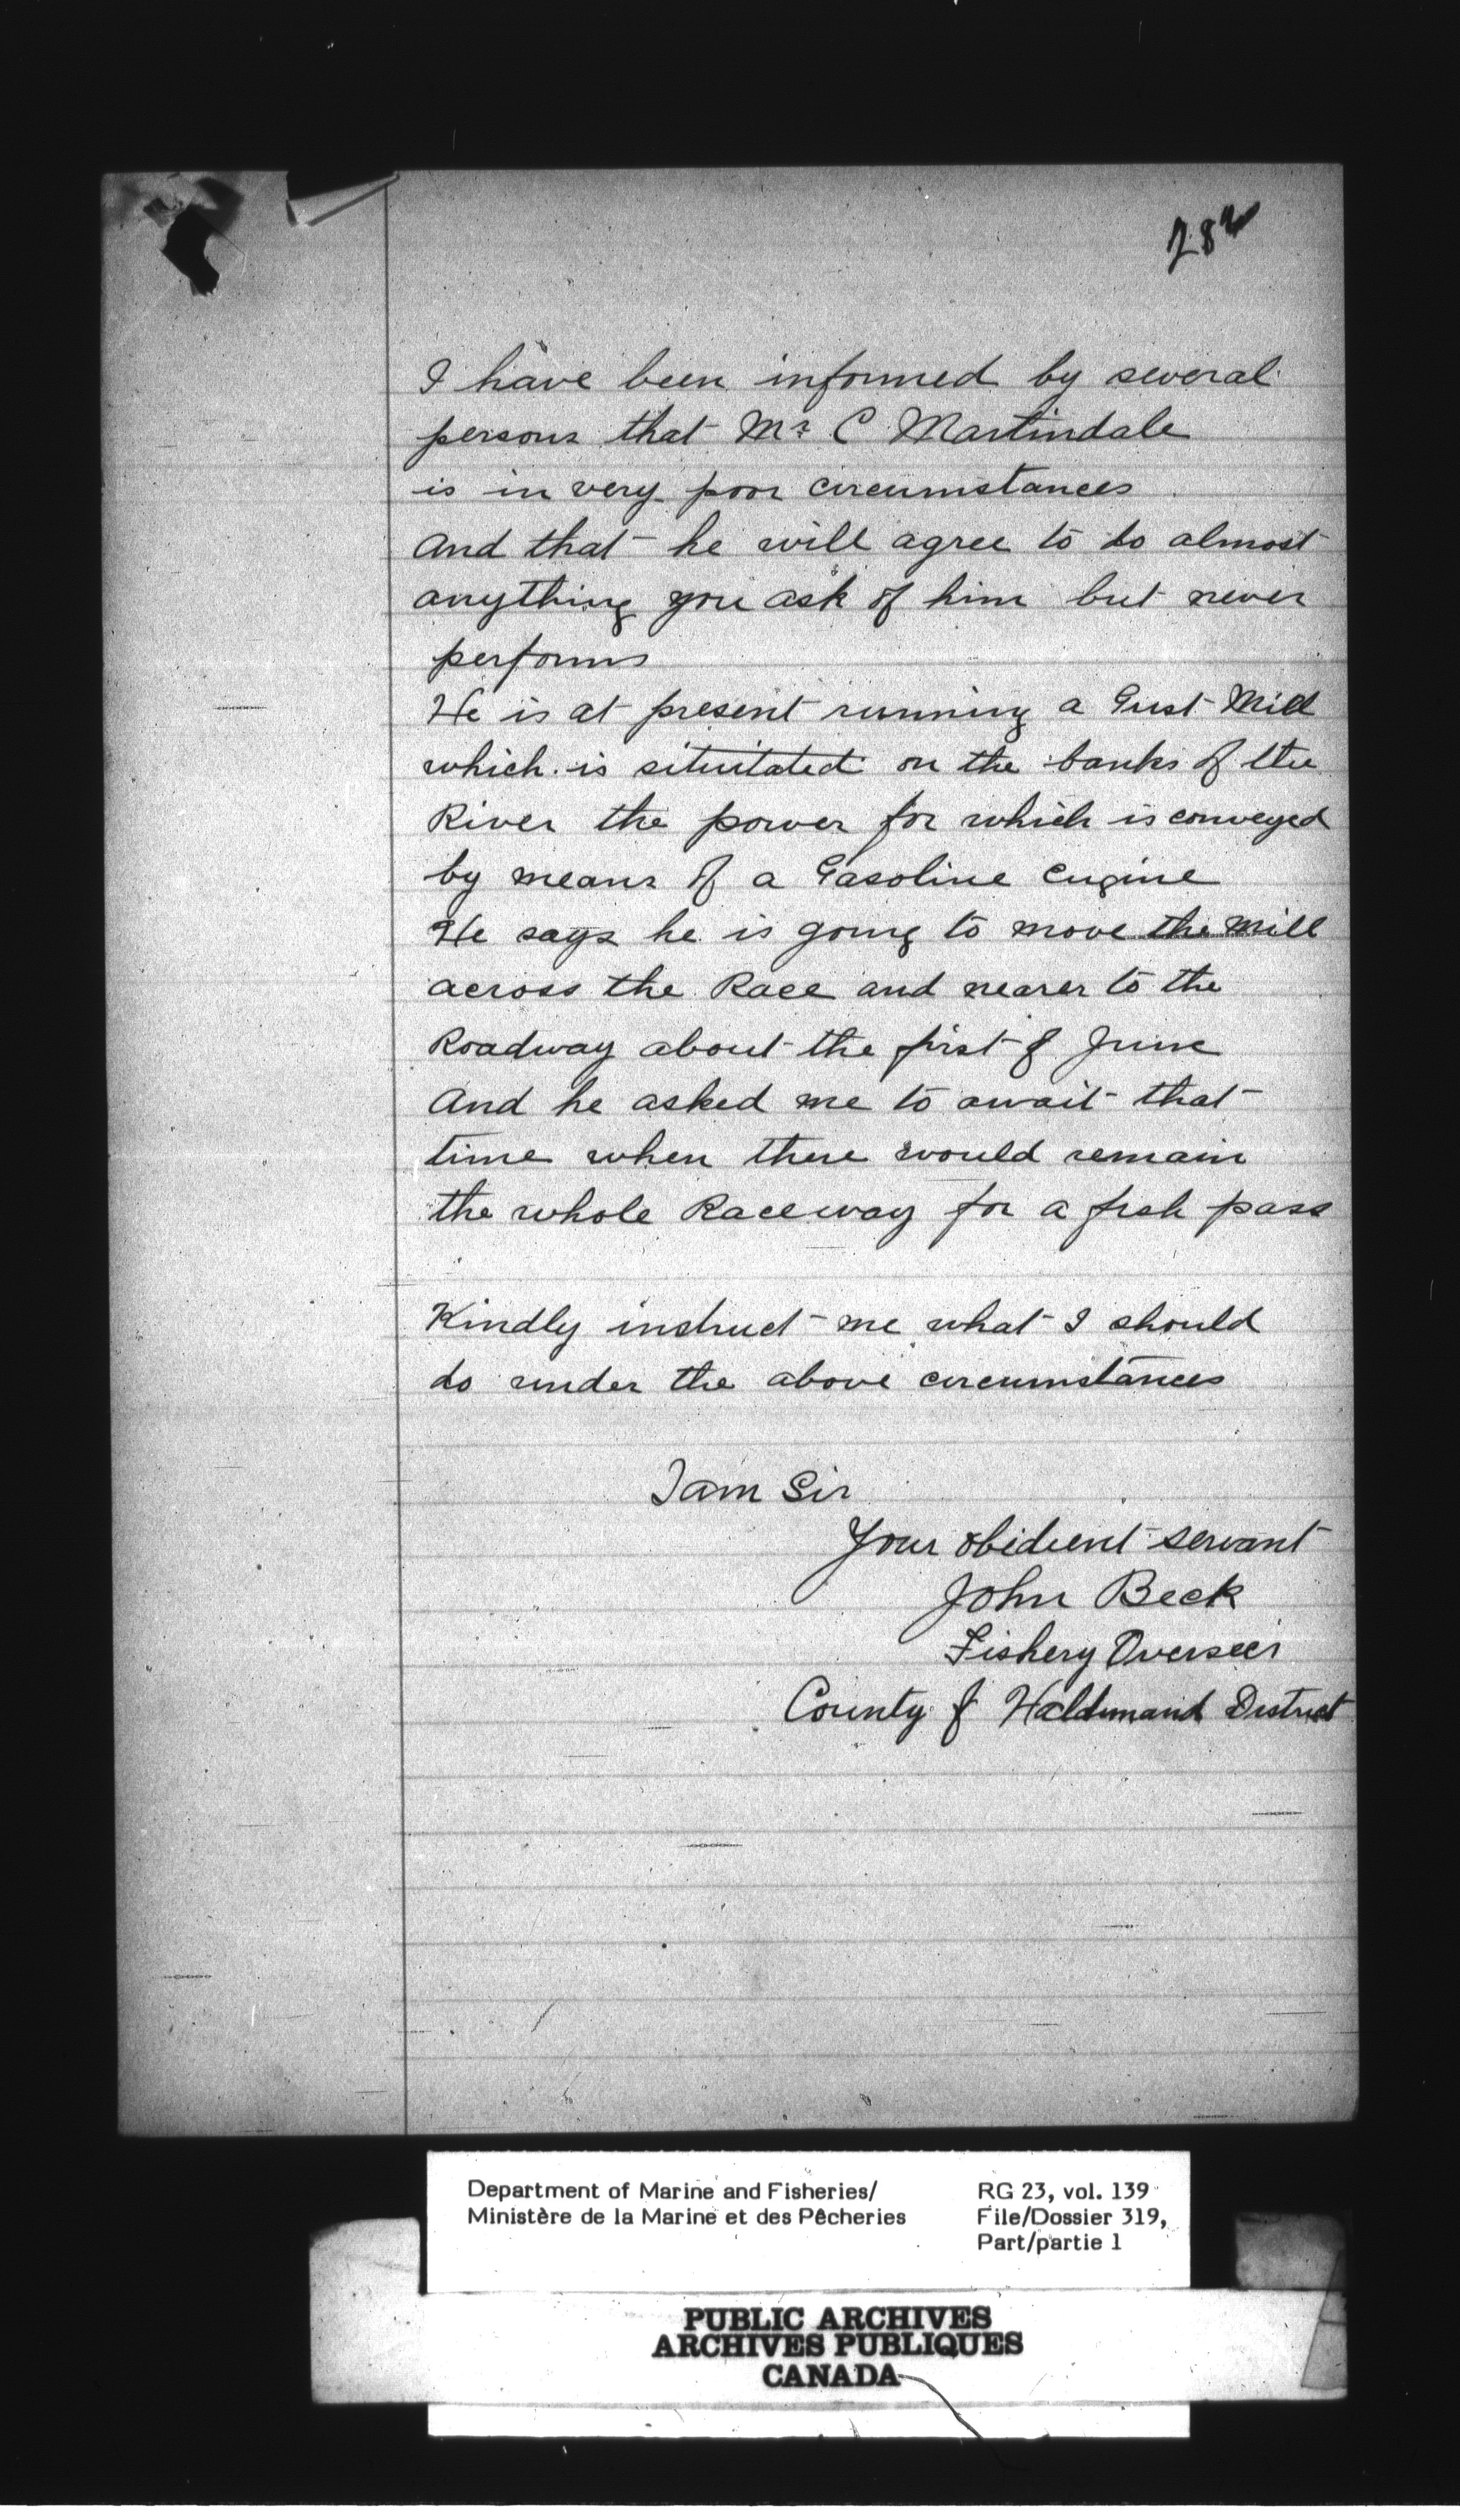 I have been informed by several
persons that Mr C Martindale
is in very poor circumstances
And that he will agree to do almost
anything you ask of him but never
performs
He is at present running a Grist Mill
which is situitated on the banks of the
River the power for which is conveyed
by means of a Gasoline Engine
He says he is going to move the mill
across the Race and nearer to the
Roadway about the first of June
And he asked me to await that
time when there would remain
the whole Raceway for a fish pass
Kindly instruct me what I should
do under the above circumstances
I am Sir
Your obidient servant
John Beck
Fishery Overseer
County of Haldimand District
Department of Marine and Fisheries/
Ministère de la Marine et des Pêcheries
RG 23, vol. 139
File/Dossier 319,
Part/partie 1
PUBLIC ARCHIVES
ARCHIVES PUBLIQUES
CANADA